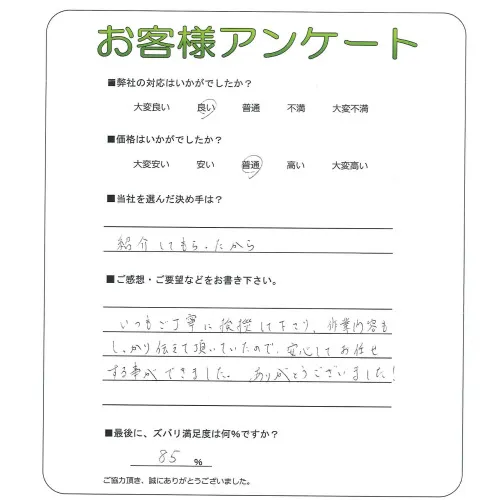 お客様アンケート
■弊社の対応はいかがでしたか？
大変良い 良い 普通 不満 大変不満
■価格はいかがでしたか？
大変安い 安い 普通 高い 大変高い
■当社を選んだ決め手は？
紹介してもらったから
■ご感想・ご要望などをお書き下さい。
いつもご丁寧に挨拶して下さり、作業内容も
しっかり伝えて頂いていたので、安心してお任せ
する事ができました。ありがとうございました！
■最後に、ズバリ満足度は何%ですか？
85 %
ご協力頂き、誠にありがとうございました。